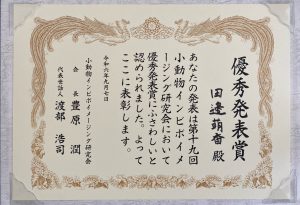 優秀発表賞
田邊萌香 殿
あなたの発表は第十九回
小動物インビボイメ
ージング研究会において
優秀発表賞にふさわしいと
認められました。よって
ここに表彰します。
令和六年九月七日
小動物インビボイメージング研究会
会長 豊原 潤
代表世話人 渡部 浩司